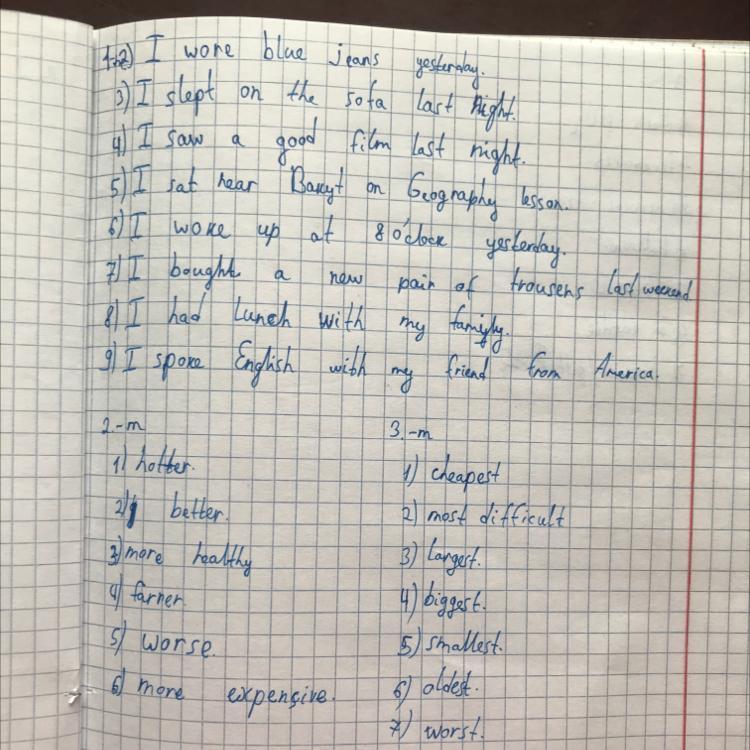 1-2) I wore blue jeans yesterday.
3) I slept on the sofa last night.
4) I saw a good film last night.
5) I sat near Bakyt on Geography lesson.
6) I woke up at 8 o'clock yesterday.
7) I bought a new pair of trousers last weekend
8) I had lunch with my family.
9) I spoke English with my friend from America.
2.-m
1) hotter.
2) better.
3) more healthy
4) farner.
5) worse.
6) more expensive.
3.-m
1) cheapest
2) most difficult
3) largest.
4) biggest.
5) smallest.
6) oldest.
7) worst.